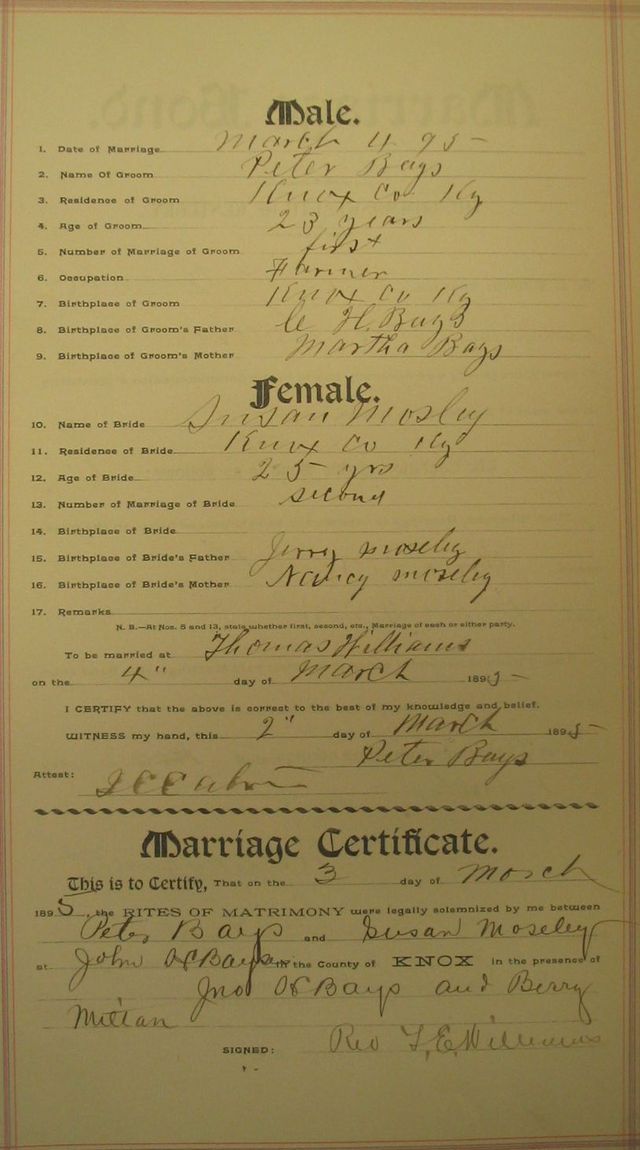 Male.
1. Date of Marriage March 4 95
2. Name Of Groom Peter Bays
3. Residence of Groom Knox Co Ky
4. Age of Groom 23 years
5. Number of Marriage of Groom first
6. Occupation Farmer
7. Birthplace of Groom Knox Co Ky
8. Birthplace of Groom's Father H. Bays
9. Birthplace of Groom's Mother Martha Bays
Female.
10. Name of Bride Susan Mosley
11. Residence of Bride Knox Co Ky
12. Age of Bride 25 yrs
13. Number of Marriage of Bride second
14. Birthplace of Bride
15. Birthplace of Bride's Father Jerry moseley
16. Birthplace of Bride's Mother Nancy moseley
17. Remarks
N. B.—At Nos. 5 and 13, state whether first, second, etc., Marriage of each or either party.
To be married at Thomas Williams
on the 4" day of March 1895
I CERTIFY that the above is correct to the best of my knowledge and belief.
WITNESS my hand, this 2" day of March 1895
Peter Bays
Attest:
Marriage Certificate.
This is to Certify, THAT on the 3 day of March
1895, the RITES OF MATRIMONY were legally solemnized by me between
Peter Bays and Susan Moseley
at John H Bays in the County of KNOX in the presence of
Jno H Bays and Berry
SIGNED: Rev T. E. Williams